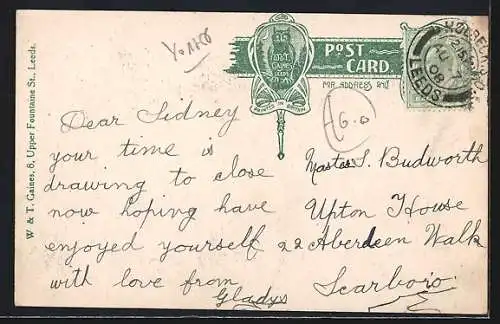 POST CARD.
FOR ADDRESS ONLY
W & T. Gaines, 8, Upper Fountaine St., Leeds.
W&T GAINES LEEDS
PRINTED IN BRITAIN
HOLBECK
AU 7
08
LEEDS
6.0
Dear Sidney
your time is
drawing to close
now hoping have
enjoyed yourself
with love from
Gladys
Master S. Budworth
Upton House
22 Aberdeen Walk
Scarboro